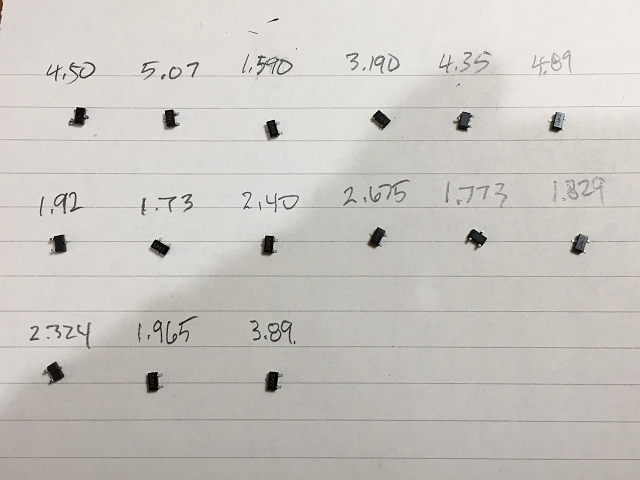 4.50 5.07 1.590 3.190 4.35 4.89
1.92 1.73 2.40 2.675 1.773 1.829
2.324 1.965 3.89.